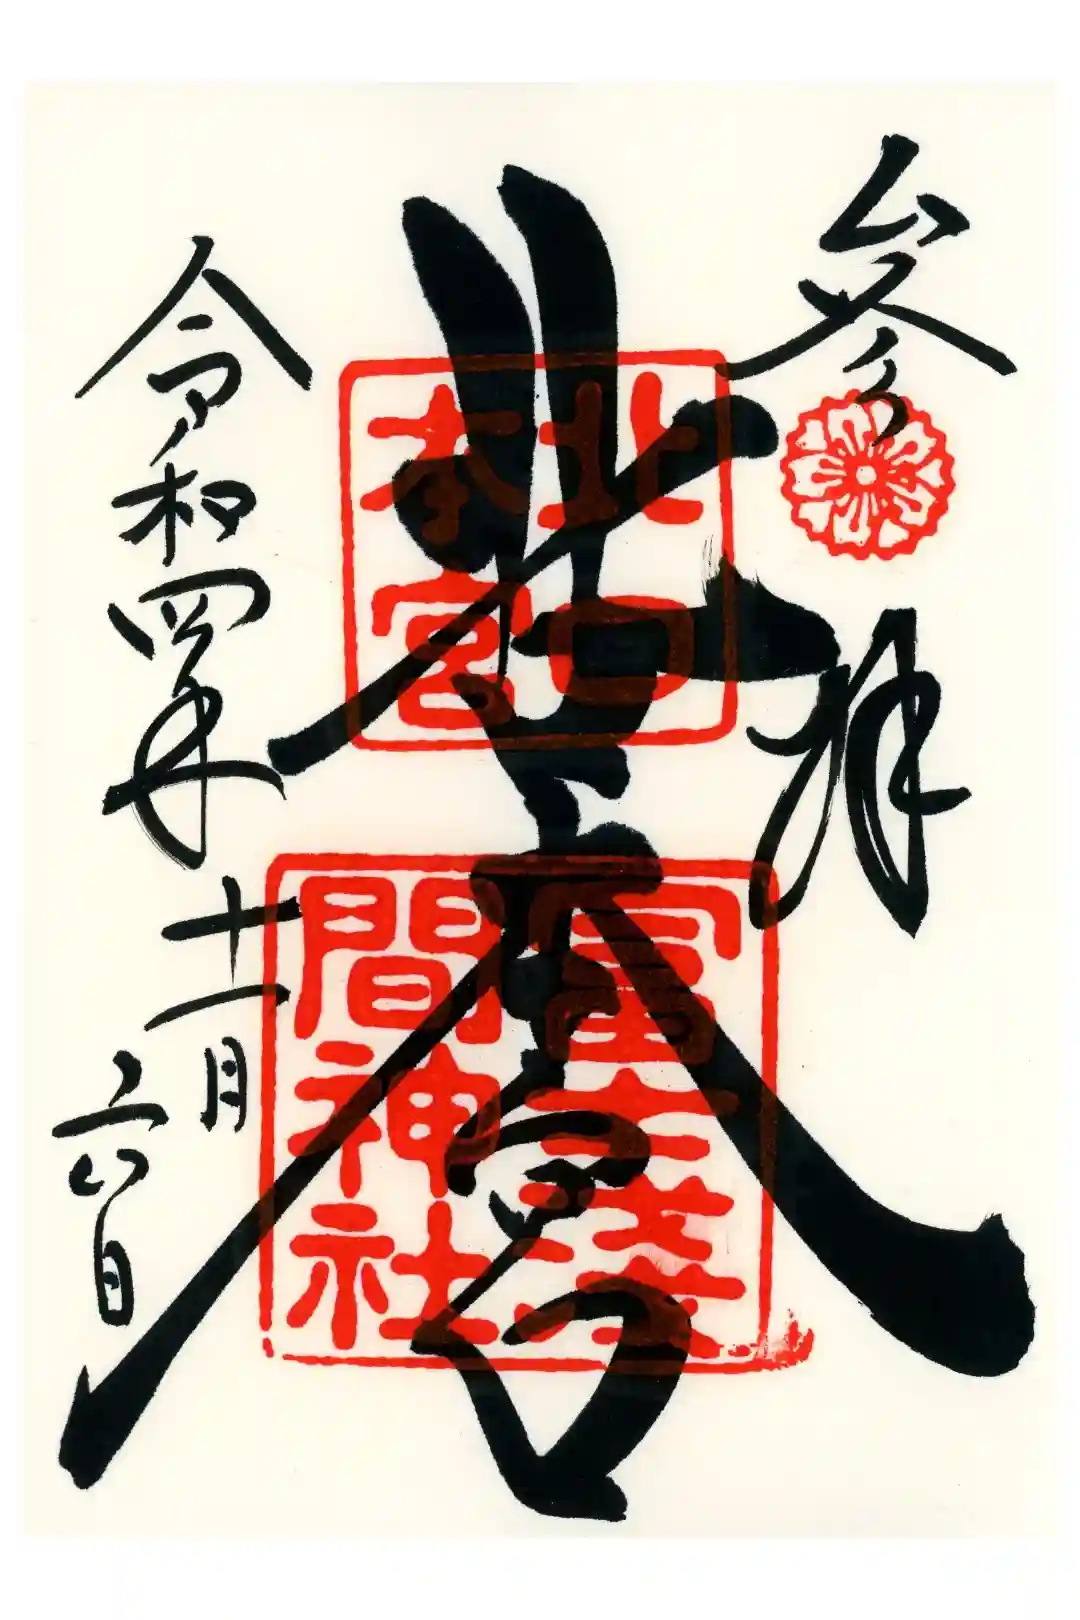 参拝
北口本宮
北口
本宮
冨士淺
間神社
令和四年十一月
六日